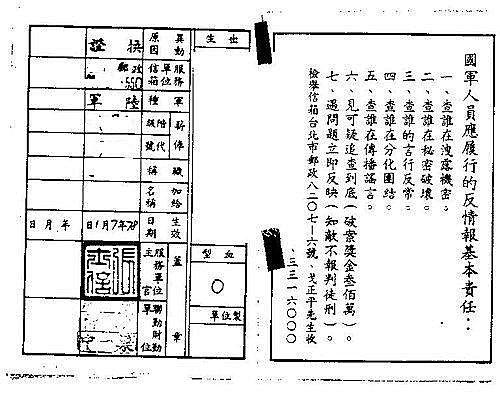 國軍人員應履行的反情報基本責任：
一、查誰在洩露機密。
二、查誰在秘密破壞。
三、查誰的言行反常。
四、查誰在分化團結。
五、查誰在傳播謠言。
六、見可疑追查到底（破案獎金叁佰萬）。
七、遇問題立即反映（知敵不報判徒刑）。
檢舉信箱台北市郵政八二〇七—六號、戈正平先生收
、三三一六〇〇〇
出生
血型
〇
製單位
異動原因
換證
服務單位信箱
郵政
550
軍種
陸軍
薪俸
階級
代號
職稱
加給名稱
生效日期
78年7月1日
年 月 日
蓋章
服務單位主官
聯勤財勤單位